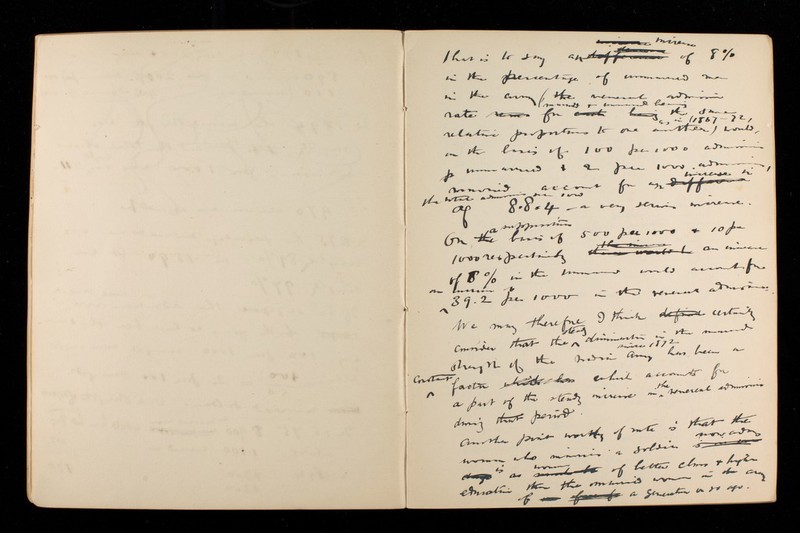 increase
That is to say an of 8%
in the percentage of unmarried men
in the army (the venereal admission
(married & unmarried being
rate for the same
as in (1867–72,
relative proportions to one another) would,
on the basis of 100 per 1000 admission
p unmarried & 2 per 1000 admission,
married account for an increase in
the total admission per 1000
of 8.8.4 – a very serious increase.
a supposition
On the basis of 500 per 1000 & 10 per
1000 respectively an increase
of 8% in the unmarried would account for
an increase of
39.2 per 1000 in the venereal admissions.
We may therefore I think certainly
steady
consider that the diminution in the married
since 1872
strength of the Indian Army has been a
constant
factor which accounts for
a part of the steady increase in the venereal admissions
during that period.
Another point worthy of note is that the
woman who marries a soldier now a days
is as of better class & higher
education than the married women in the army
of a generation or so ago.